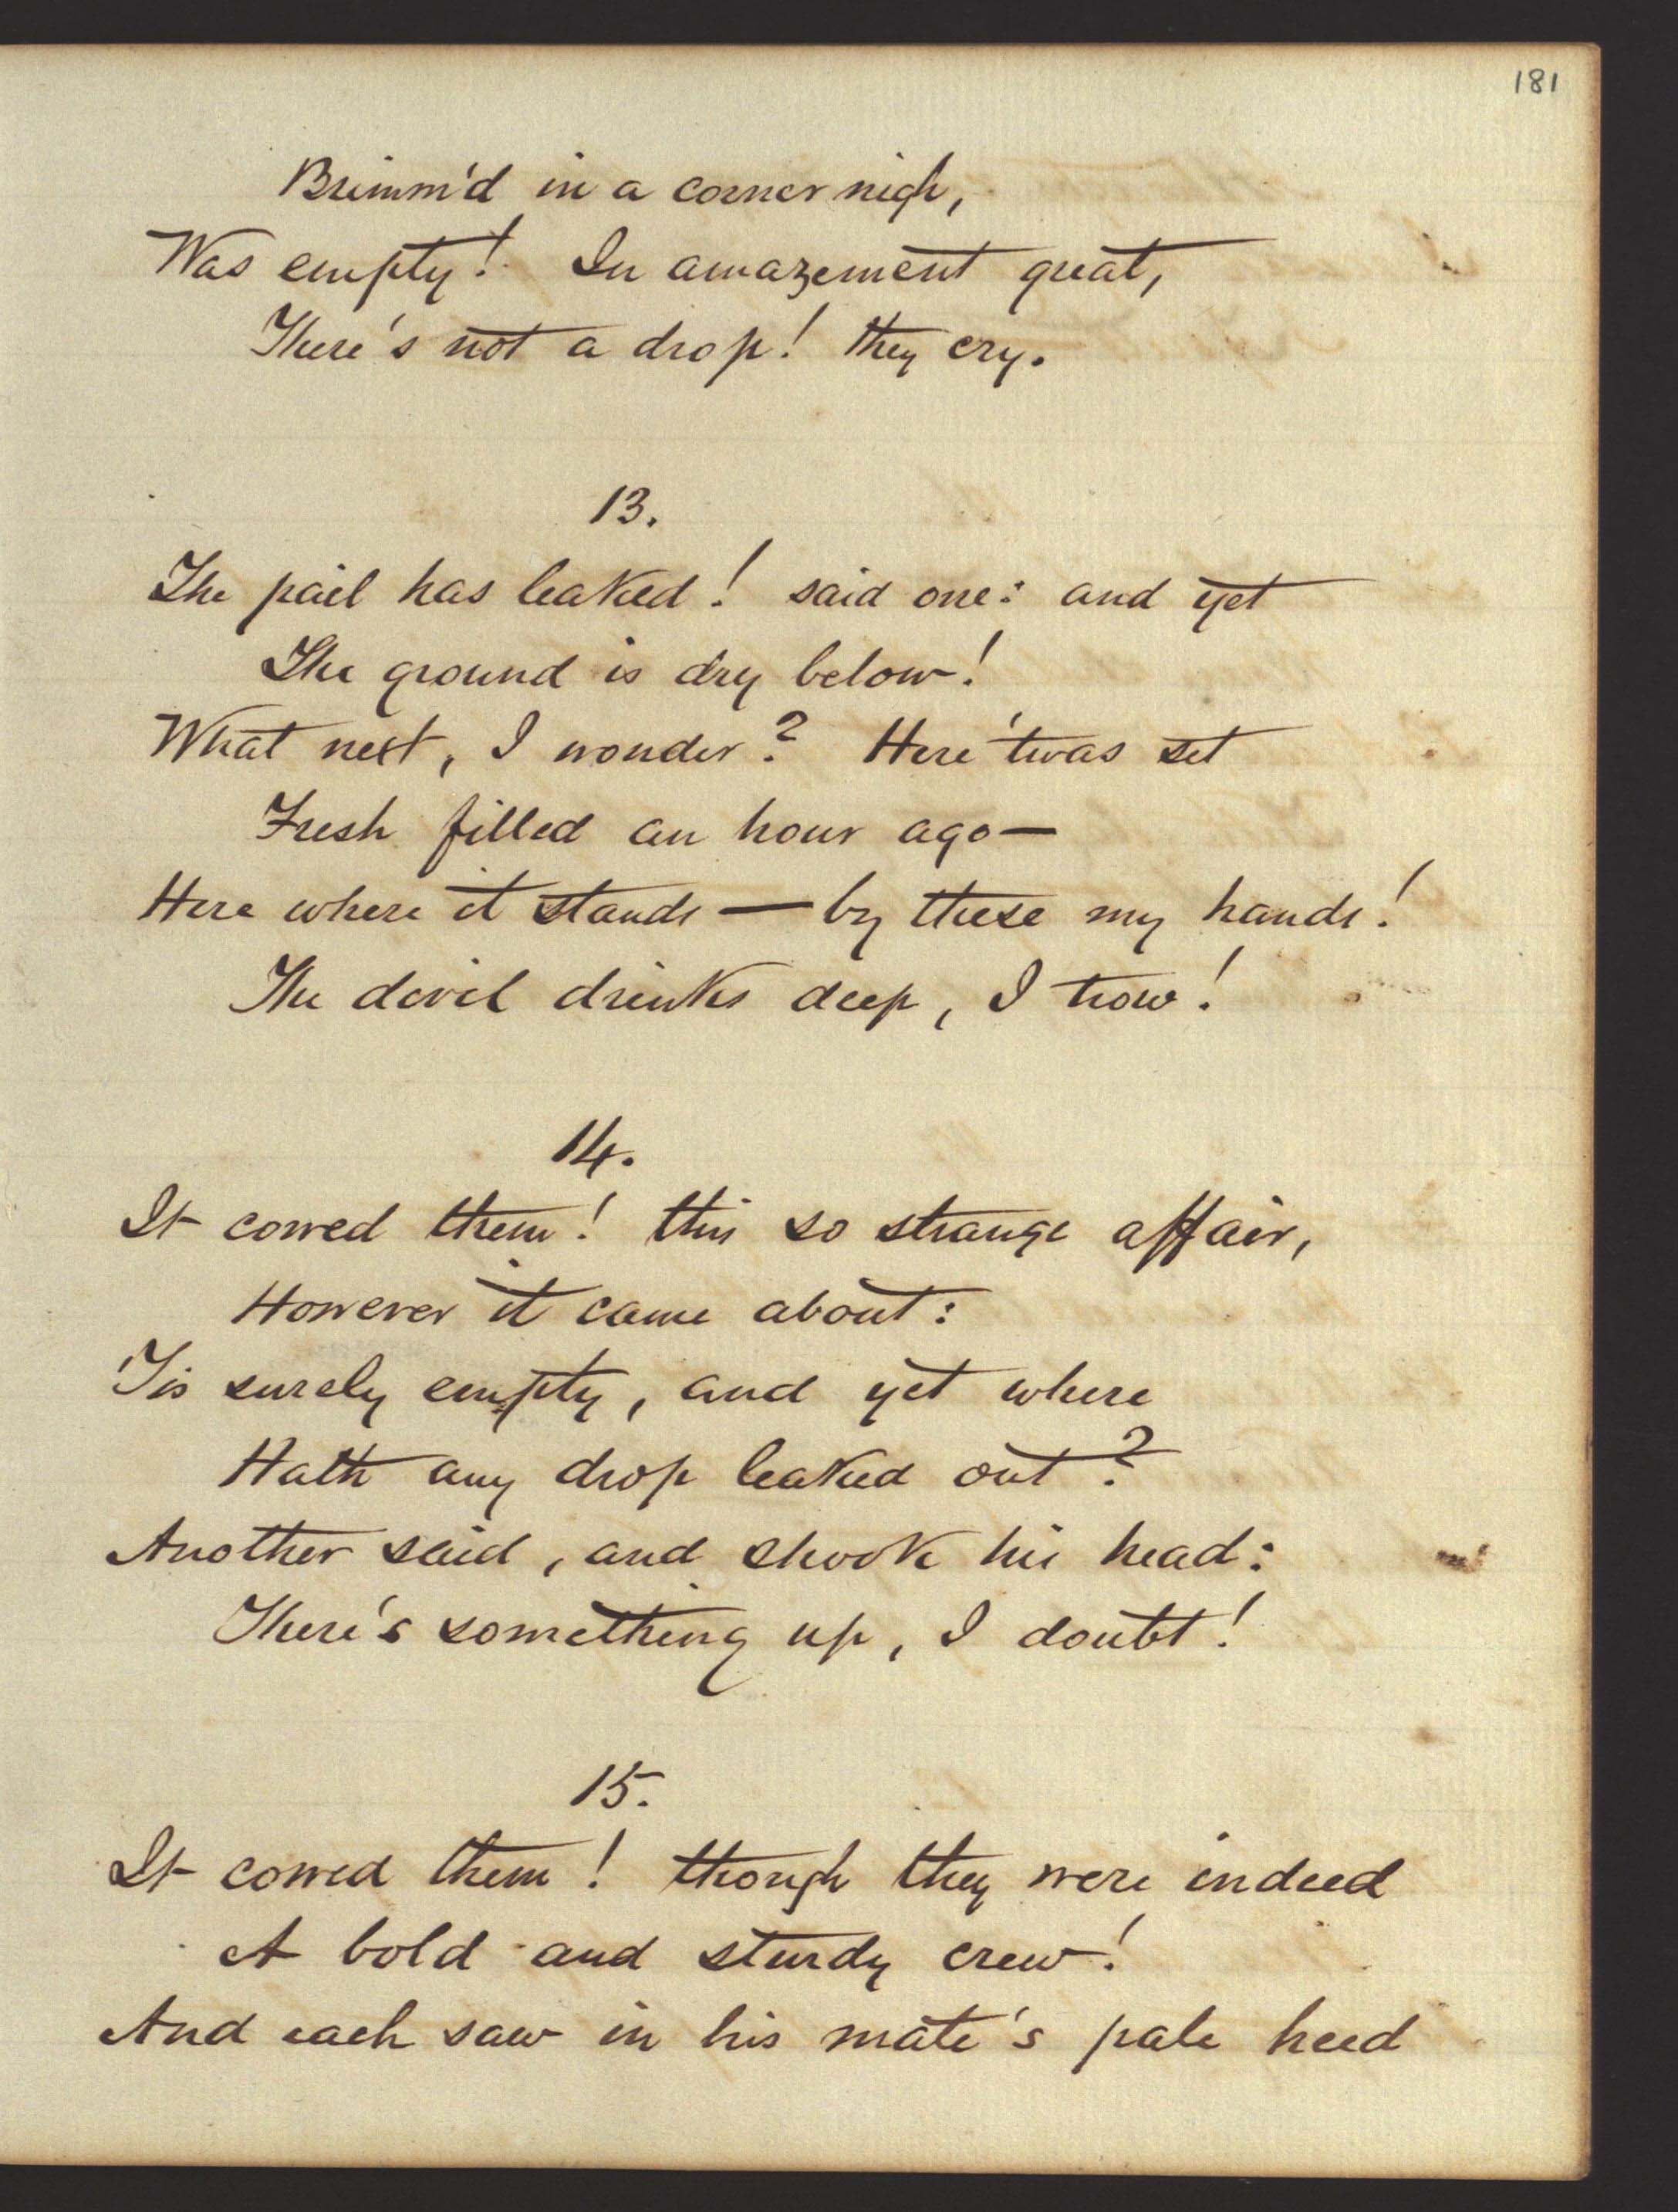 181
Brimm'd in a corner nigh,
Was empty! In amazement great,
There's not a drop! they cry.
13.
The pail has leaked! said one: and yet
The ground is dry below!
What next, I wonder? Here 'twas set
Fresh filled an hour ago—
Here where it stands — by these my hands!
The devil drinks deep, I trow!
14.
It cowed them! this so strange affair,
However it came about:
'Tis surely empty, and yet where
Hath any drop leaked out?
Another said, and shook his head:
There's something up, I doubt!
15.
It cowed them! though they were indeed
A bold and sturdy crew!
And each saw in his mate's pale heed